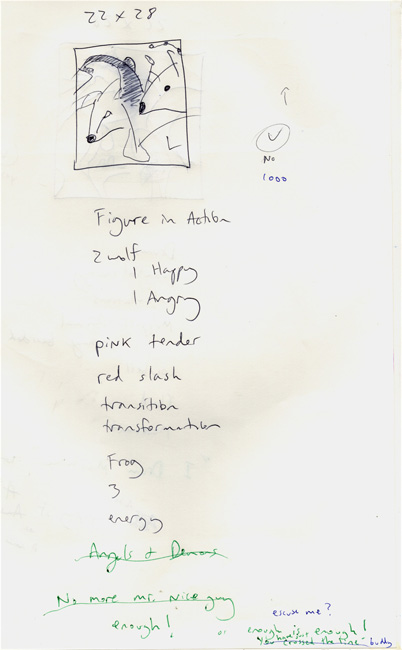 22 x 28
L
No
1000
Figure in Action
2 wolf
1 Happy
1 Angry
pink tender
red slash
transition
transformation
Frog
3
energy
Angels + Demons
No more mr. nice guy
enough!
escuse me?
or enough is enough!
You crossed the line buddy